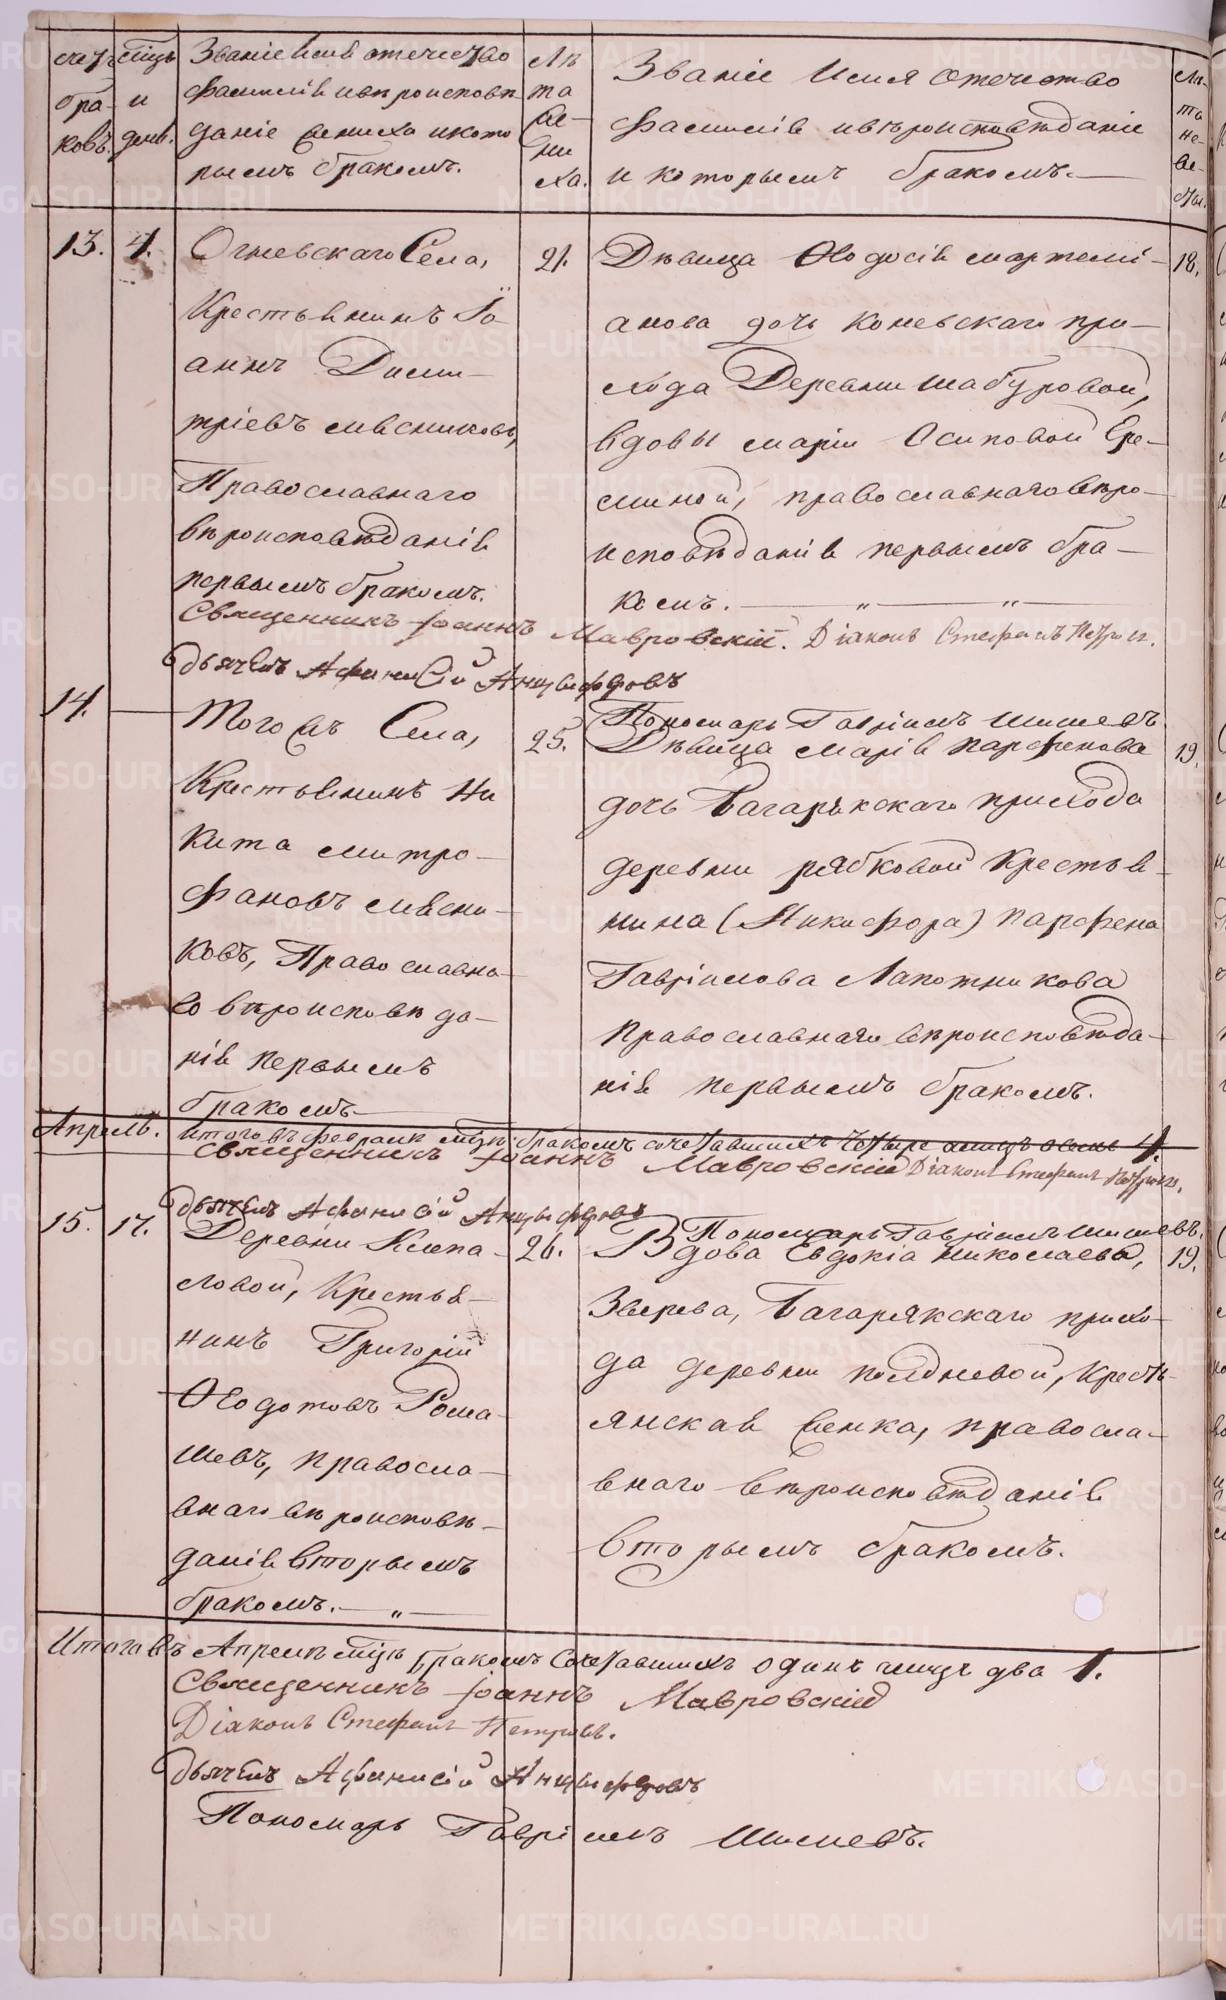 счетъ бра- ковъ.
мцъ и день.
Званіе имя отечество
фамилія и вѣроисповѣ
даніе жениха и кото
рымъ бракомъ.
Лѣ
та
же-
ни
ха.
Званіе Имя Отечество
Фамилія и вѣроисповѣданіе
и которымъ бракомъ.
Лѣ
та
не-
вѣ-
сты.
13. 4. Огневскаго Села,
Крестьянинъ Іо-
аннъ Дими-
тріевъ мясниковъ,
Православнаго
вѣроисповѣданія
первымъ бракомъ.
21.
Дѣвица Ѳеодосія мартемі-
анова дочь Коневскаго при-
хода Деревни шабуровой,
вдовы маріи Осиповой Ере-
миной, православнаго вѣро-
исповѣданія первымъ бра-
комъ.
18.
Священникъ Іоаннъ Мавровскій. Діаконъ Стефанъ Петровъ.
дьячекъ Афанасій Анцыферовъ
Пономарь Гавріилъ Шишевъ.
14. Того жъ Села,
Крестьянинъ Ни
кита митро-
фановъ мясни-
ковъ, Православна-
го вѣроисповѣда-
нія первымъ
бракомъ
25.
Дѣвица марія парфенова
дочь Багарякскаго прихода
деревни рябковой Крестья-
нина (Никифора) парфена
Гавріилова Лапотникова
православнаго вѣроисповѣда-
нія первымъ бракомъ.
19.
Апрель. итого въ феврали мцѣ бракомъ сочетавшихъ четыре лицъ осмь 4
Священникъ Іоаннъ Мавровскій Діаконъ Стефанъ Петровъ.
дьячекъ Афанасій Анцыферовъ
Пономарь Гавріилъ Шишевъ.
15. 17. Деревни Клепа-
ловой, Крестья-
нинъ Григорій
Ѳеодотовъ Рома-
шевъ, правосла-
внаго вѣроисповѣ-
данія вторымъ
бракомъ.
26.
Вдова Евдокіа николаева,
Зверева, Багарякскаго прихо-
да деревни полдневой, Кресть-
янская женка, правосла-
внаго вѣроисповѣданія
вторымъ бракомъ.
19.
Итого въ Апрелѣ мцѣ бракомъ Сочетавшихъ одинъ лицъ два 1.
Священникъ Іоаннъ Мавровскій
Діаконъ Стефанъ Петровъ.
дьячекъ Афанасій Анцыферовъ
Пономарь Гавріилъ Шишевъ.
METRIKI.GASO-URAL.RU